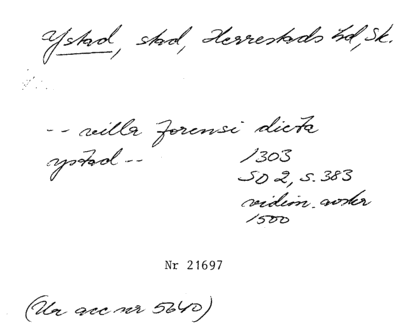 Ystad, stad, Herrestads hd, Sk.
-- villa forensi dicta
ystad --
1303
SD 2, s. 383
vidim. avskr
1500
Nr 21697
(Ur acc nr 5640)